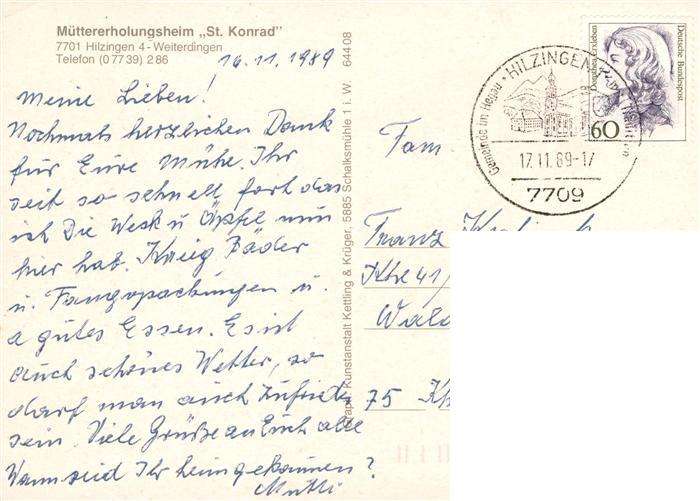 Müttererholungsheim „St. Konrad"
7701 Hilzingen 4 - Weiterdingen
Telefon (0 77 39) 2 86
16.11.1989
Meine Lieben!
Nochmals herzlichen Dank
für Eure Mühe. Ihr
seit so schnell fort das
ich die Weck u Äpfel nun
hier hab. Krieg Bäder
u. Fangopackungen u.
a gutes Essen. Es ist
auch schönes Wetter, so
darf man auch zufrieden
sein. Viele Grüße an Euch alle
Wann seid Ihr heimgekommen?
Mutti
Kunstanstalt Kettling & Krüger, 5885 Schalksmühle 1 i. W. 644 08
Gemeinde im Hegau · HILZINGEN
17.11.89-17
7709
Dorothea Erxleben
Deutsche Bundespost
60
Fam.
Franz
Khe 41/
Wald
75 Kh